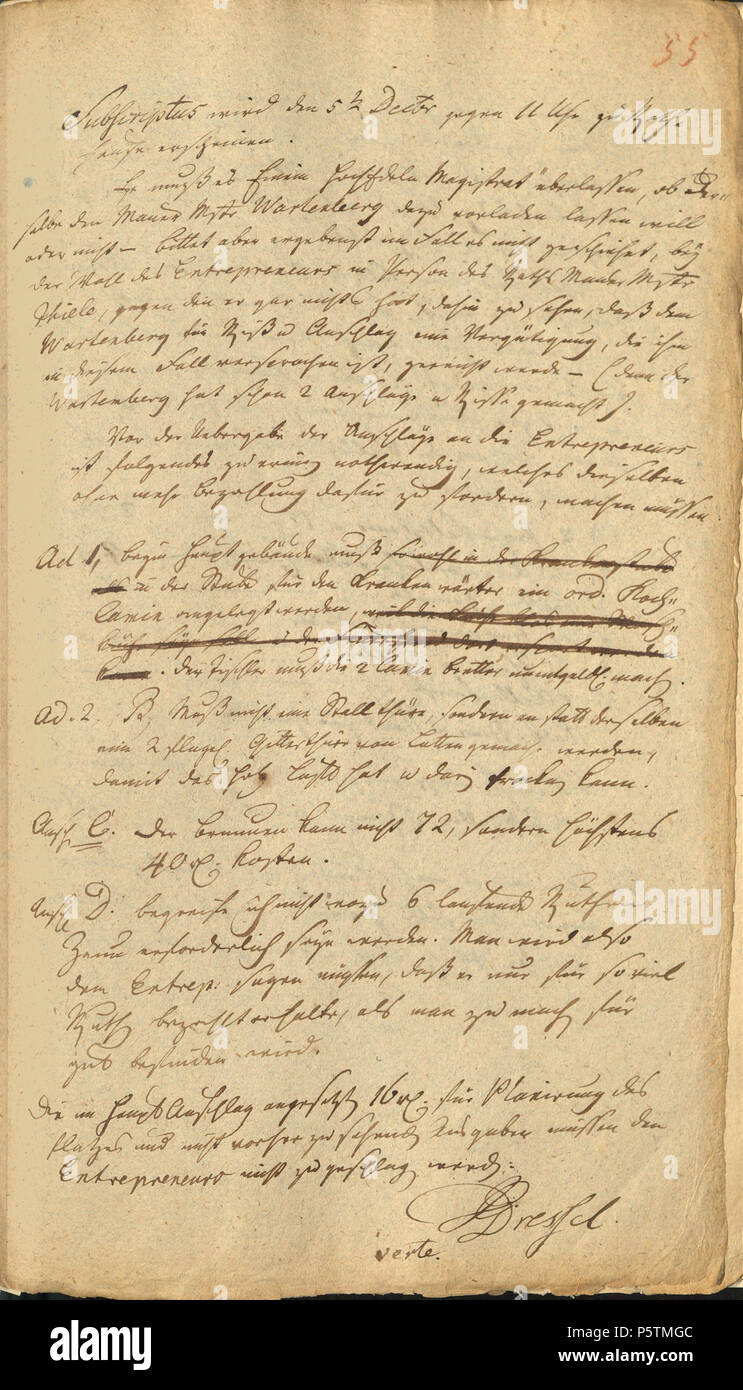 55
Subscriptus wird den 5t Decbr gegen 11 Uhr zu Rath-
hause erscheinen.
Er muß es Einem HochEdeln Magistrat überlassen, ob Der-
selbe den Mauer Mstr Wartenberg dazu vorladen lassen will
oder nicht – bittet aber ergebenst im Fall es nicht geschiehet, bey
der Wahl des Entrepreneurs in Person des Raths Mauer Mstr
Thiele, gegen den er gar nichts hat, dahin zu sehen, daß dem
Wartenberg für Riß u Anschlag eine Vergütigung, die ihm
in diesem Fall versprochen ist, gereicht werde – (denn der
Wartenberg hat schon 2 Anschläge u Risse gemacht).
Vor der Uebergabe der Anschläge an die Entrepreneurs
ist folgendes zu nothwendig, welches dieselben
ohne mehr Bezahlung dafür zu fordern, machen müssen.
Ad 1, beym Hauptgebäude muß sowohl in der Krankenstube
als in der Stube für den Krankenwärter ein ord. Koch-
Camin angelegt werden, weil die
. Der Tischler muß die 2 Camin Bretter unentgeldl. mach.
Ad. 2. B, Muß nicht eine Stallthüre, sondern an statt derselben
eine 2 flügel. Gitterthüre von Latten gemacht werden,
damit das Holz Luft hat u darin trocknen kann.
Ansch C. Der Brunnen kann nicht 72, sondern höchstens
40 rl. kosten.
Ansch D. begreife ich nicht wozu 6 laufende Ruthen
Zaun erforderlich seyn werden. Man wird also
dem Entrep: sagen müssen, daß er nur für so viel
Ruth bezahlt erhalte, als man zu machen für
gut befinden wird.
Die im Haupt Anschlag angesetzten 16 rl. für Planirung des
Platzes und nicht vorher zu sehende Ausgaben müssen den
Entrepreneurs nicht zugeschlag werden.
Dressel.
verte.
alamy
Image ID: P5TMGC
www.alamy.com